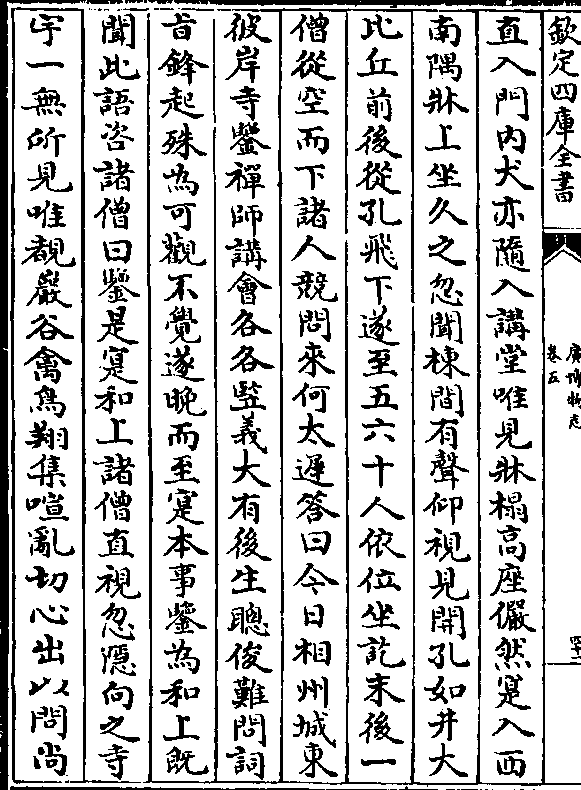 欽定四庫全書
廣博物志
卷五
直入門内犬亦隨入講堂唯見牀榻高座儼然寔入西
南隅牀上坐久之忽聞棟間有聲仰視見開孔如井大
比丘前後從孔飛下遂至五六十人依位坐訖末後一
僧從空而下諸人競問來何太遲答曰今日相州城東
彼岸寺鑒禪師講會各各竪義大有後生聰俊難問詞
旨鋒起殊為可觀不覺遂晚而至寔本事鑒為和上既
聞此語咨諸僧曰鑒是寔和上諸僧直視忽隱向之寺
宇一無所見唯覩巖谷禽鳥翔集喧亂切心出以問尚